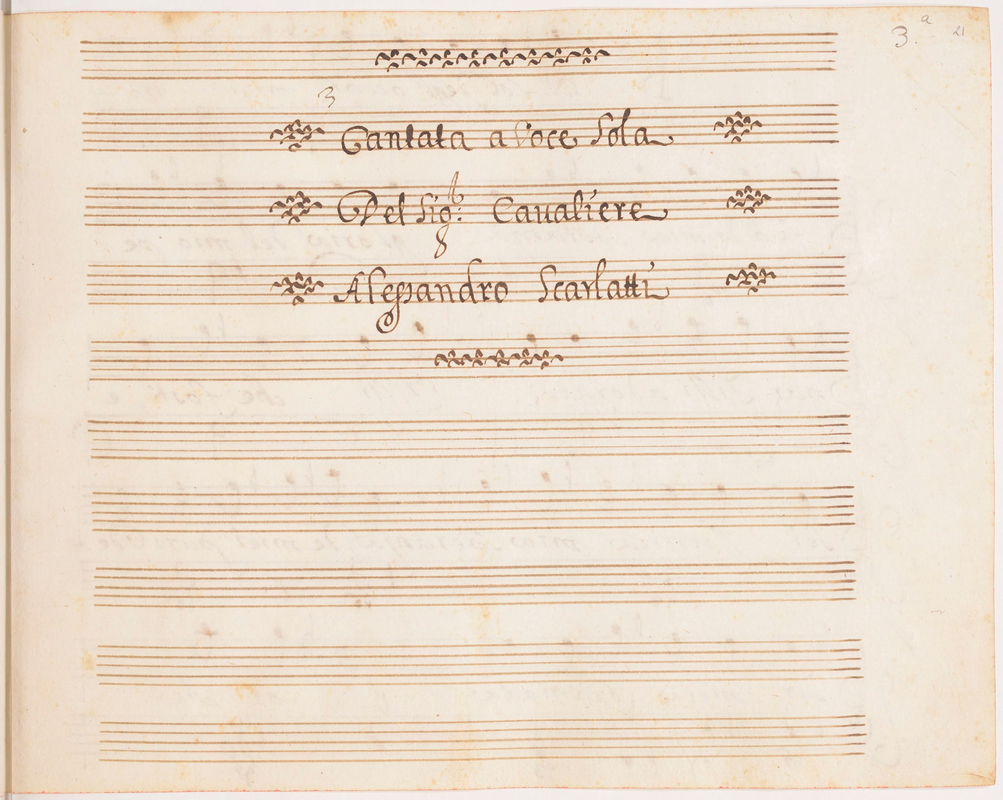 3.a 21
3
Cantata a Voce Sola
Del Sigr: Caualiere
Alessandro Scarlatti